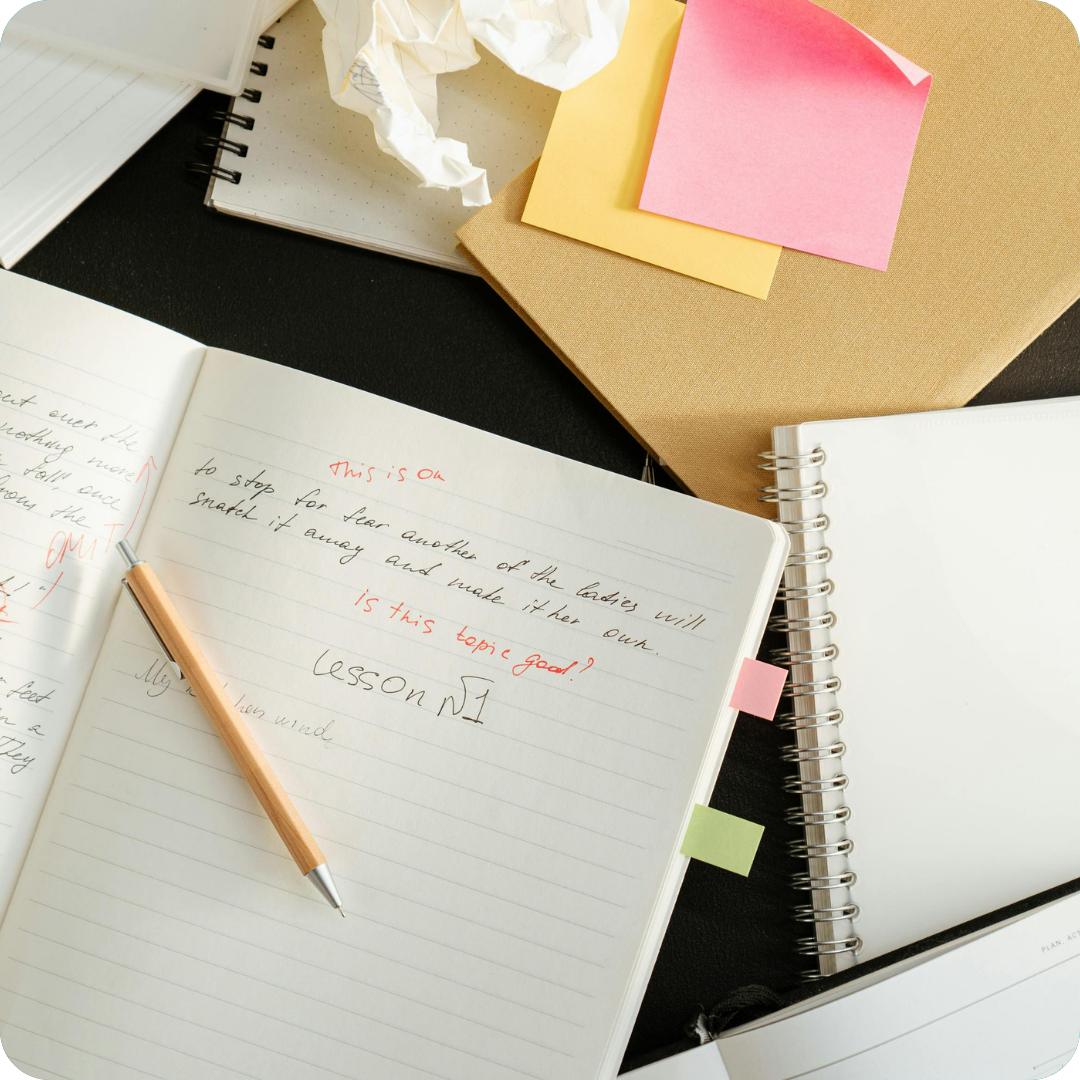 out over the
nothing more
tall", once
from the
OMIT
feet
in a
They
This is OK
to stop for fear another of the ladies will
snatch it away and make it her own.
is this topic good?
Lesson №1
My her wind
PLAN. ACT